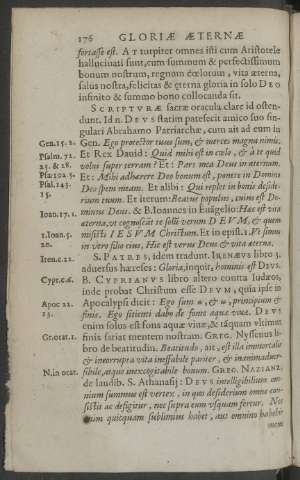 176 GLORIÆ ÆTERNÆ
fortasse est. At turpiter omnes isti cum Aristotele
hallucinati sunt, cum summum & perfectissimum
bonum nostrum, regnum cœlorum, vita æterna,
salus nostra, felicitas & æterna gloria in solo Deo
infinito & summo bono collocanda sit.
Scripturæ sacræ oracula clare id osten-
dunt. Id n. Devs statim patefecit amico suo sin-
gulari Abrahamo Patriarchæ, cum ait ad eum in
Gen. 15. 2. Gen. Ego protector tuus sum, & merces magna nimis.
Psalm. 72. Et Rex Dauid: Quid mihi est in cœlo, & à te quid
25. & 28. volui super terram? Et: Pars mea Deus in æternum.
Ps. 102. 5. Et: Mihi adhærere Deo bonum est, ponere in Domino
Psal. 143. Deo spem meam. Et alibi: Qui replet in bonis deside-
15. rium tuum. Et iterum: Beatus populus, cuius est Do-
Ioan. 17. 1. minus Deus. & B. Ioannes in Euãgelio: Hæc est vita
æterna, vt cognoscãt te solũ verum DEVM, & quem
1. Ioan. 5. misisti IESVM Christum. Et in epist. 1. Vt simus
20. in vero filio eius, Hic est verus Deus & vita æterna.
S. Patres, idem tradunt. Irenæus libro 3.
Iren. c. 22. aduersus hæreses: Gloria, inquit, hominis est Deus.
Cypr. c. 2. B. Cyprianus libro altero contra Iudæos,
inde probat Christum esse Devm, quia ipse in
Apoc 22. Apocalypsi dicit: Ego sum α, & ω, principium &
13. finis. Ego sitienti dabo de fonte aquæ viuæ. Devs
enim solus est fons aquæ viuæ, & tãquam vltimus
Gr. orat. 1. finis satiat mentem nostram. Greg. Nyssenus li-
bro de beatitudin. Beatitudo, ait, est illa immortalis
& incorrupta vita ineffabile pariter, & inæstimabile
N. in orat. sibile, atque inexcogitabile bonum. Greg. Nazianz.
de laudib. S. Athanasij: Devs intelligibilium om-
nium summus est vertex, in quo desiderium omne con-
sistit ac defigitur, nec supra eum vsquam fertur. Ne-
que enim quicquam sublimius habet, aut omnino habebit